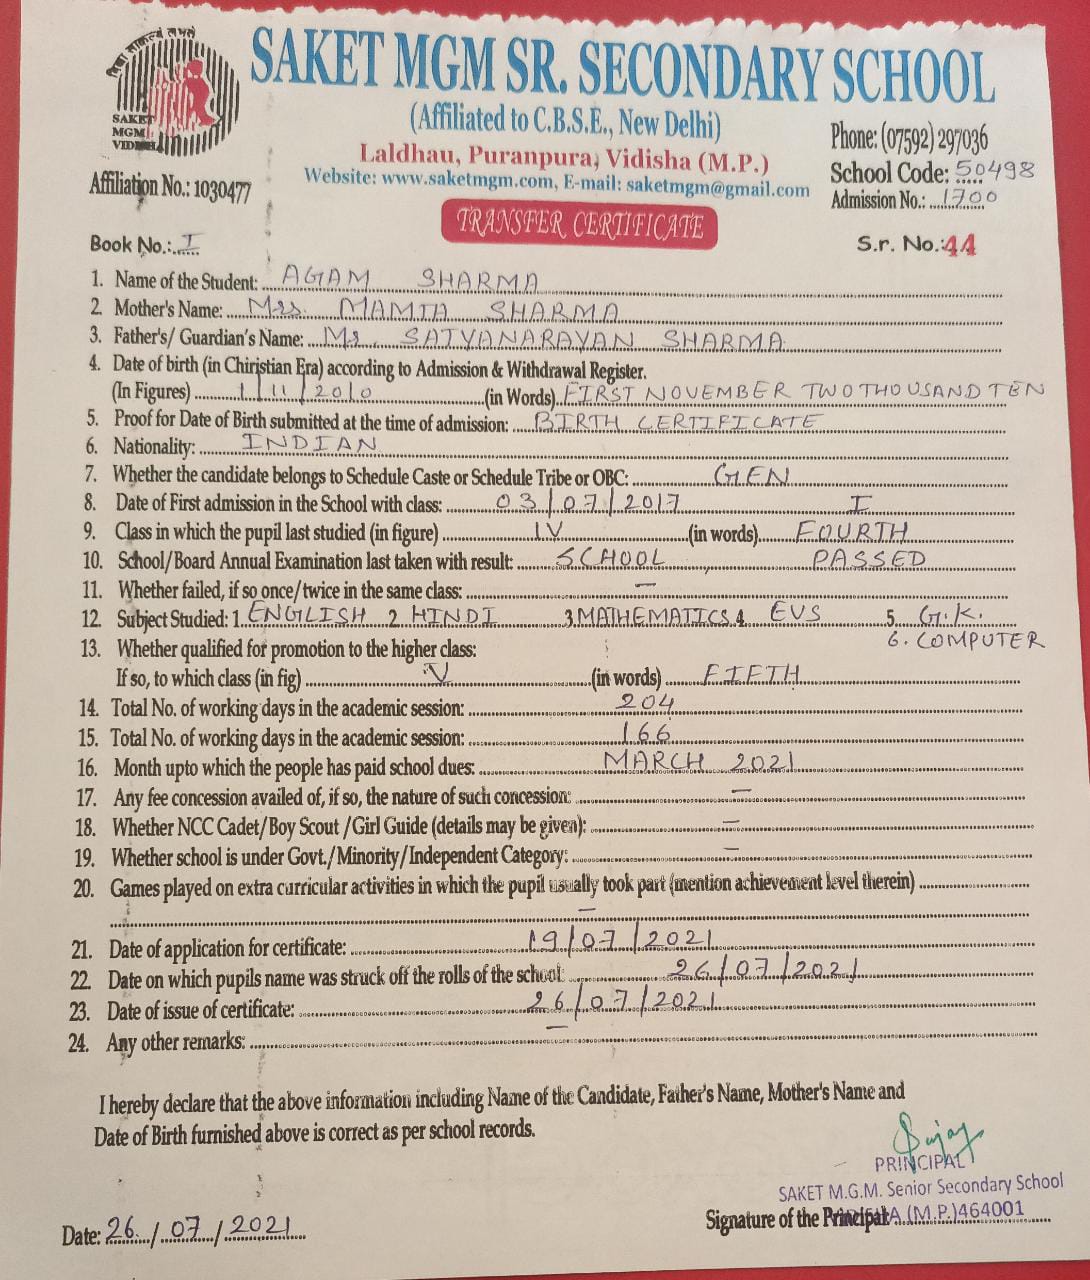 विद्या साकल्यं लभते
SAKET
MGM
VIDISHA
SAKET MGM SR. SECONDARY SCHOOL
(Affiliated to C.B.S.E., New Delhi)
Laldhau, Puranpura, Vidisha (M.P.)
Website: www.saketmgm.com, E-mail: saketmgm@gmail.com
Phone: (07592) 297036
School Code: 50498
Admission No.: 1700
Affiliation No.: 1030477
TRANSFER CERTIFICATE
Book No.: I
S.r. No.: 44
1. Name of the Student: AGAM SHARMA
2. Mother's Name: Mrs. MAMTA SHARMA
3. Father's/ Guardian's Name: Mr. SATYANARAYAN SHARMA
4. Date of birth (in Chiristian Era) according to Admission & Withdrawal Register.
(In Figures) 1/11/2010 (in Words) FIRST NOVEMBER TWO THOUSAND TEN
5. Proof for Date of Birth submitted at the time of admission: BIRTH CERTIFICATE
6. Nationality: INDIAN
7. Whether the candidate belongs to Schedule Caste or Schedule Tribe or OBC: GEN
8. Date of First admission in the School with class: 03/07/2017 I
9. Class in which the pupil last studied (in figure) IV (in words) FOURTH
10. School/Board Annual Examination last taken with result: SCHOOL, PASSED
11. Whether failed, if so once/twice in the same class: —
12. Subject Studied: 1. ENGLISH 2. HINDI 3. MATHEMATICS 4. EVS 5. G.K.
6. COMPUTER
13. Whether qualified for promotion to the higher class:
If so, to which class (in fig) V (in words) FIFTH
14. Total No. of working days in the academic session: 204
15. Total No. of working days in the academic session: 166
16. Month upto which the people has paid school dues: MARCH 2021
17. Any fee concession availed of, if so, the nature of such concession: —
18. Whether NCC Cadet/Boy Scout /Girl Guide (details may be given): —
19. Whether school is under Govt./Minority/Independent Category: —
20. Games played on extra curricular activities in which the pupil usually took part (mention achievement level therein)
—
21. Date of application for certificate: 19/07/2021
22. Date on which pupils name was struck off the rolls of the school: 26/07/2021
23. Date of issue of certificate: 26/07/2021
24. Any other remarks: —
I hereby declare that the above information including Name of the Candidate, Father's Name, Mother's Name and
Date of Birth furnished above is correct as per school records.
PRINCIPAL
SAKET M.G.M. Senior Secondary School
(M.P.)464001
Signature of the Principal
Date: 26/07/2021